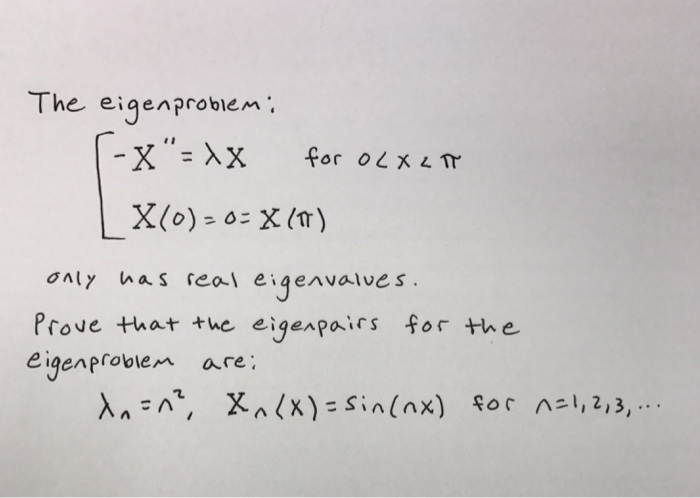 The eigenproblem:
-X" = λX for 0<x<π
X(0) = 0 = X(π)
only has real eigenvalues.
Prove that the eigenpairs for the
eigenproblem are:
λₙ = n², Xₙ(x) = sin(nx) for n=1,2,3,...